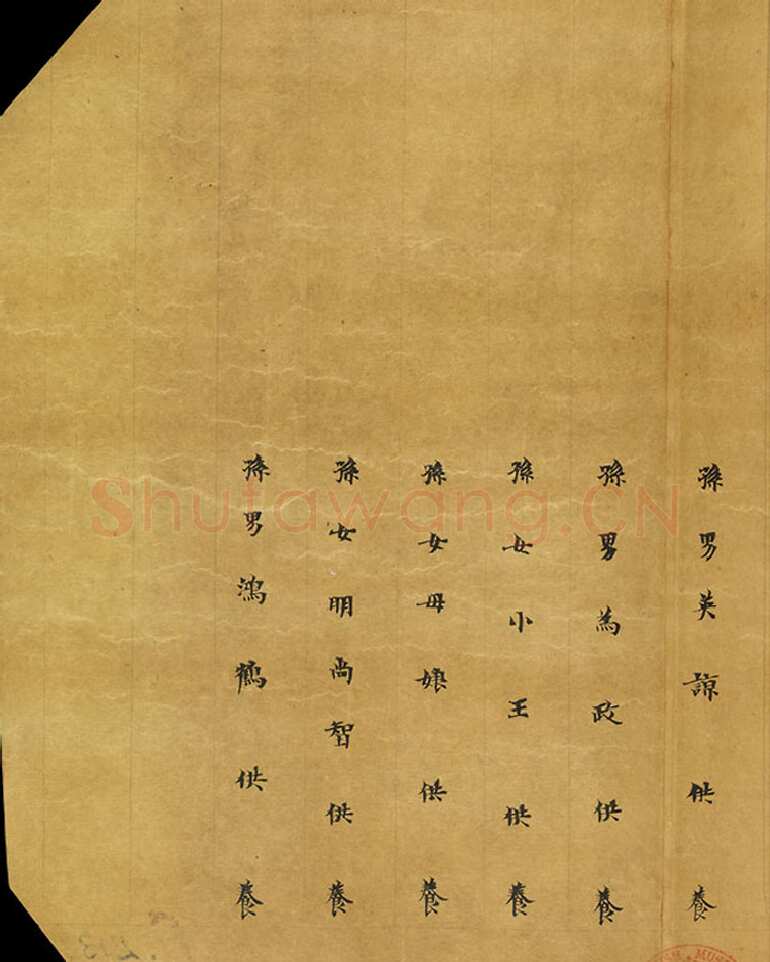 孫男英諒供養
孫男為政供養
孫女小王供養
孫女母娘供養
孫女明尚智供養
孫男鴻鶴供養
Shufawang.CN